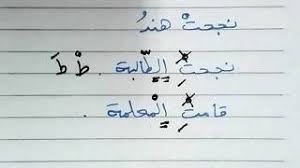 نجحتْ هندُ
نجحتِ الطّالبة . طْ طَ
قامتِ الْمعلمة .